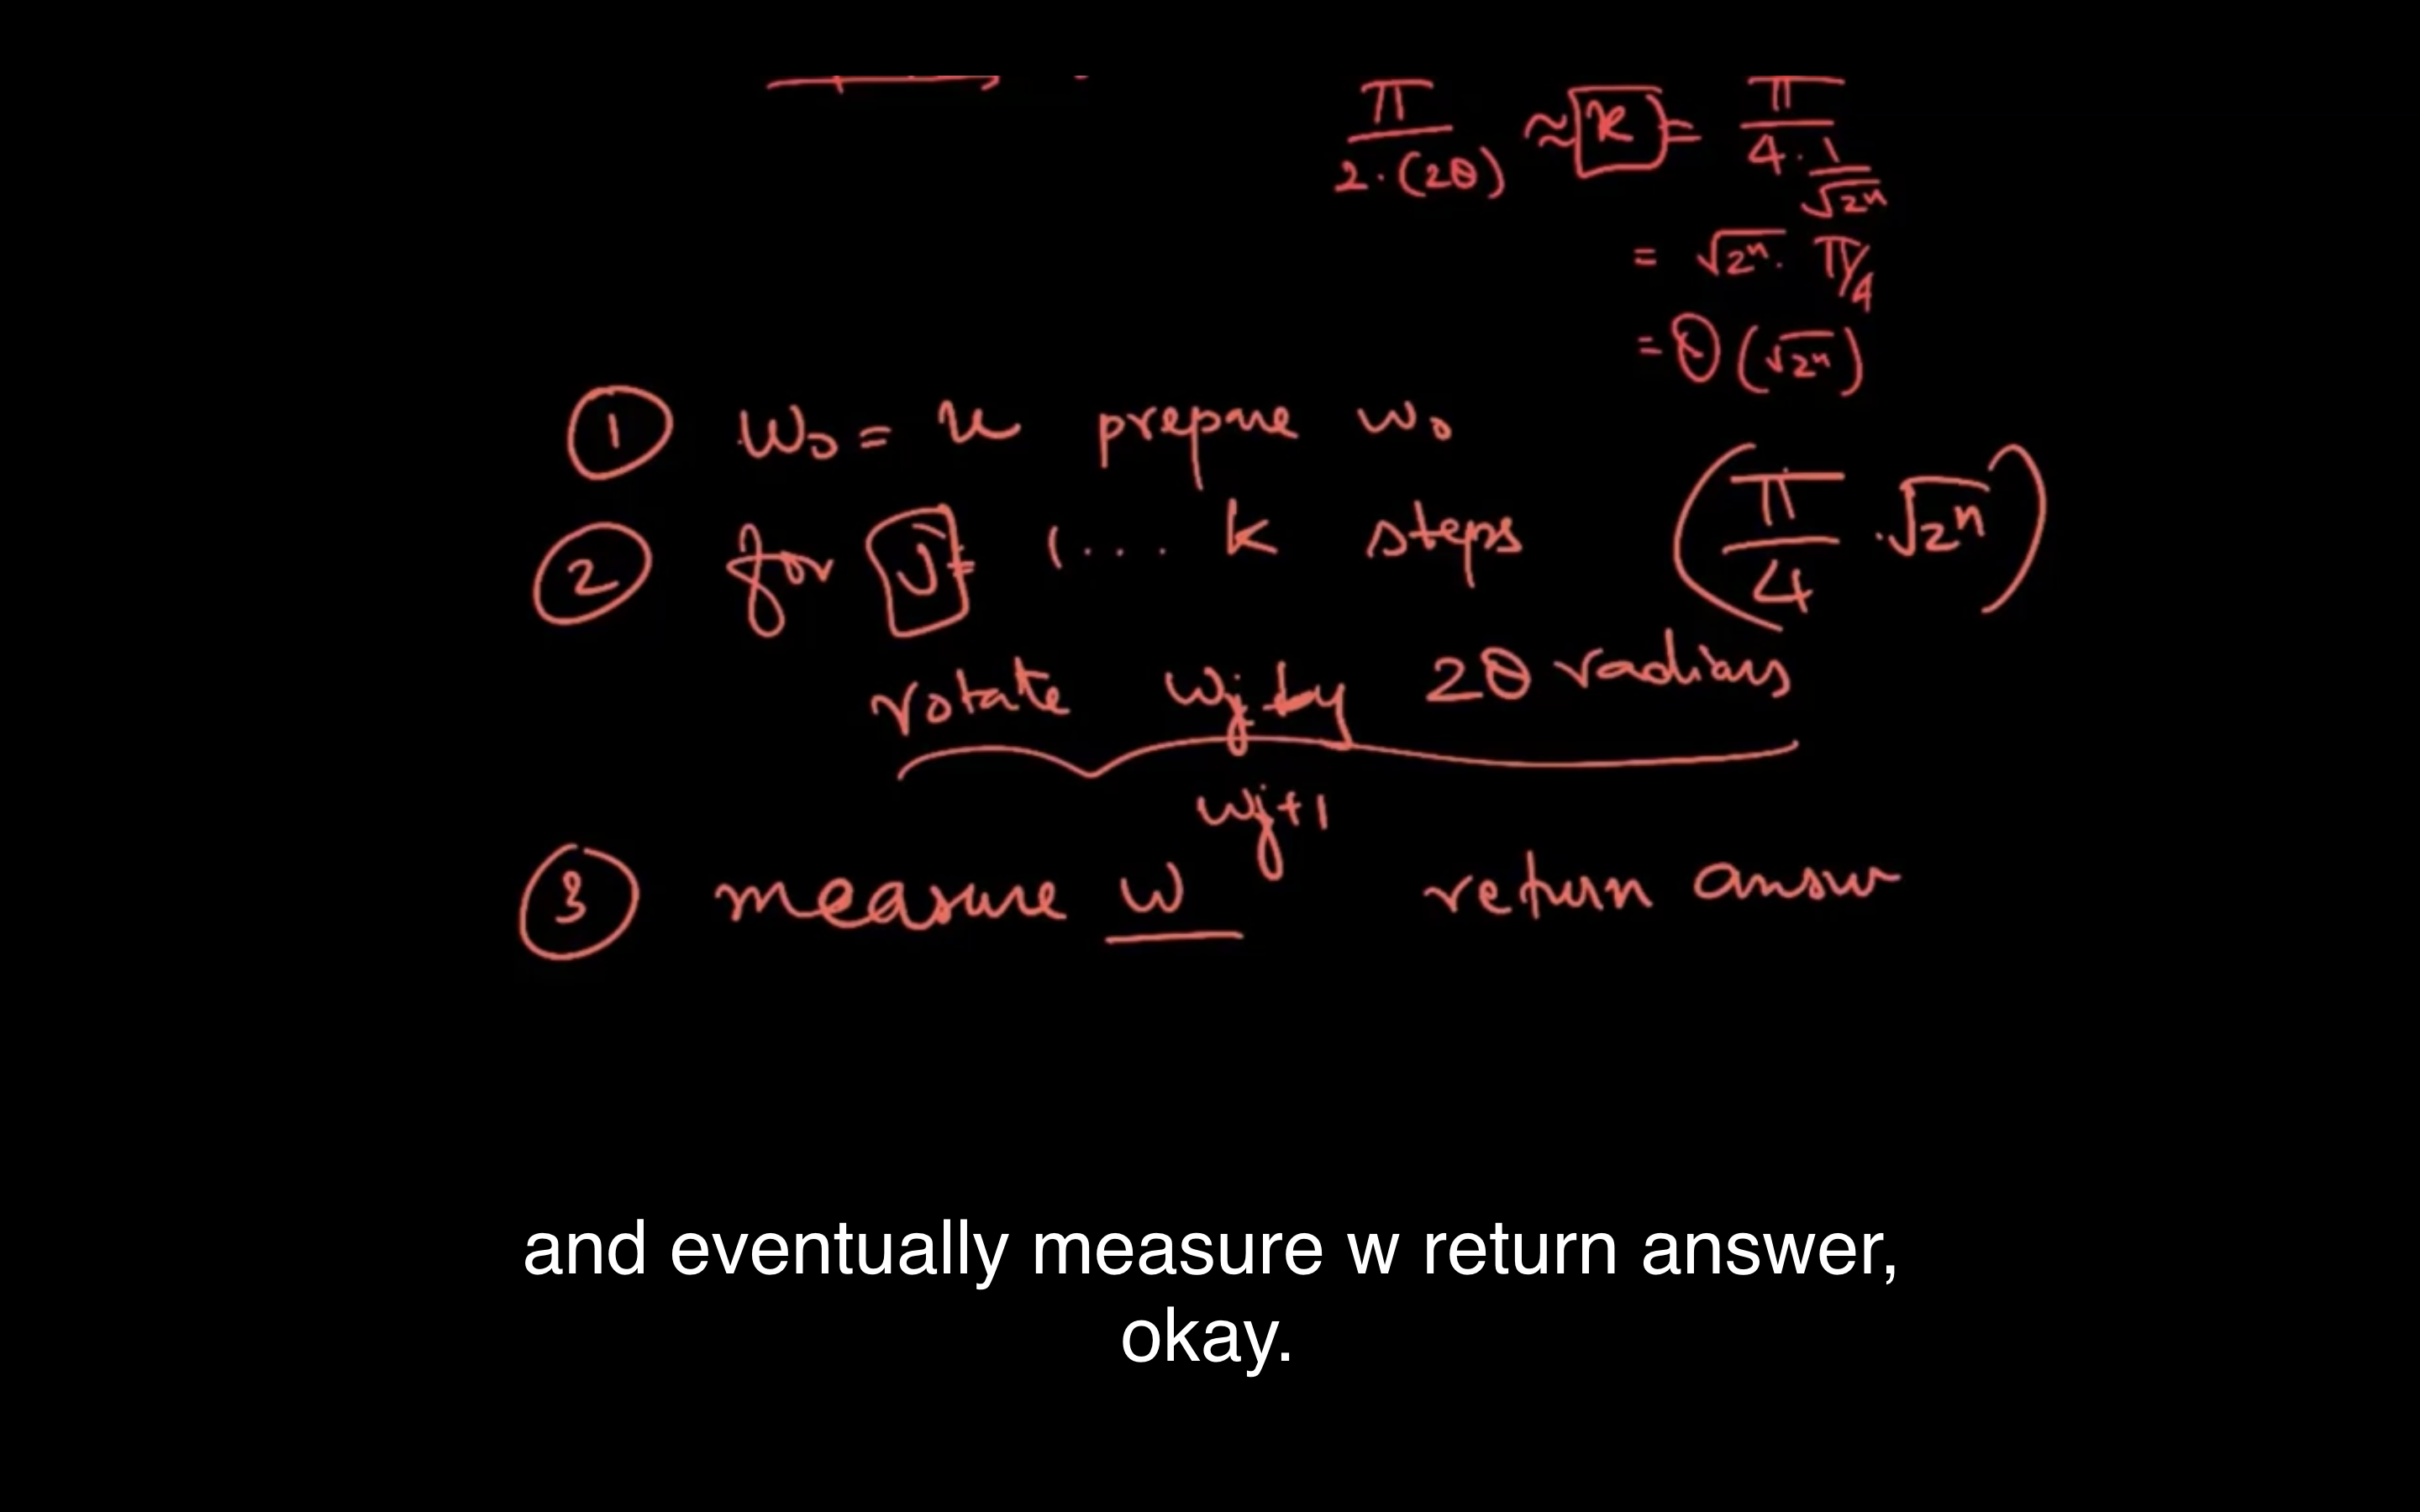 π/(2·(2θ)) ≈ k = π/(4·1/√2ⁿ)
= √2ⁿ · π/4
= O(√2ⁿ)
① w₀ = u prepare w₀
② for j = 1 ... k steps (π/4 · √2ⁿ)
rotate wⱼ by 2θ radians
wj+1
③ measure w return answr
and eventually measure w return answer,
okay.